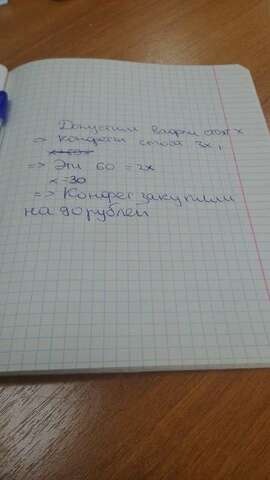 Допустим вафли стоят x
=> конфеты стоят 3x,
=> Эти 60 = 2x
x = 30
=> Конфет закупили
на 90 рублей